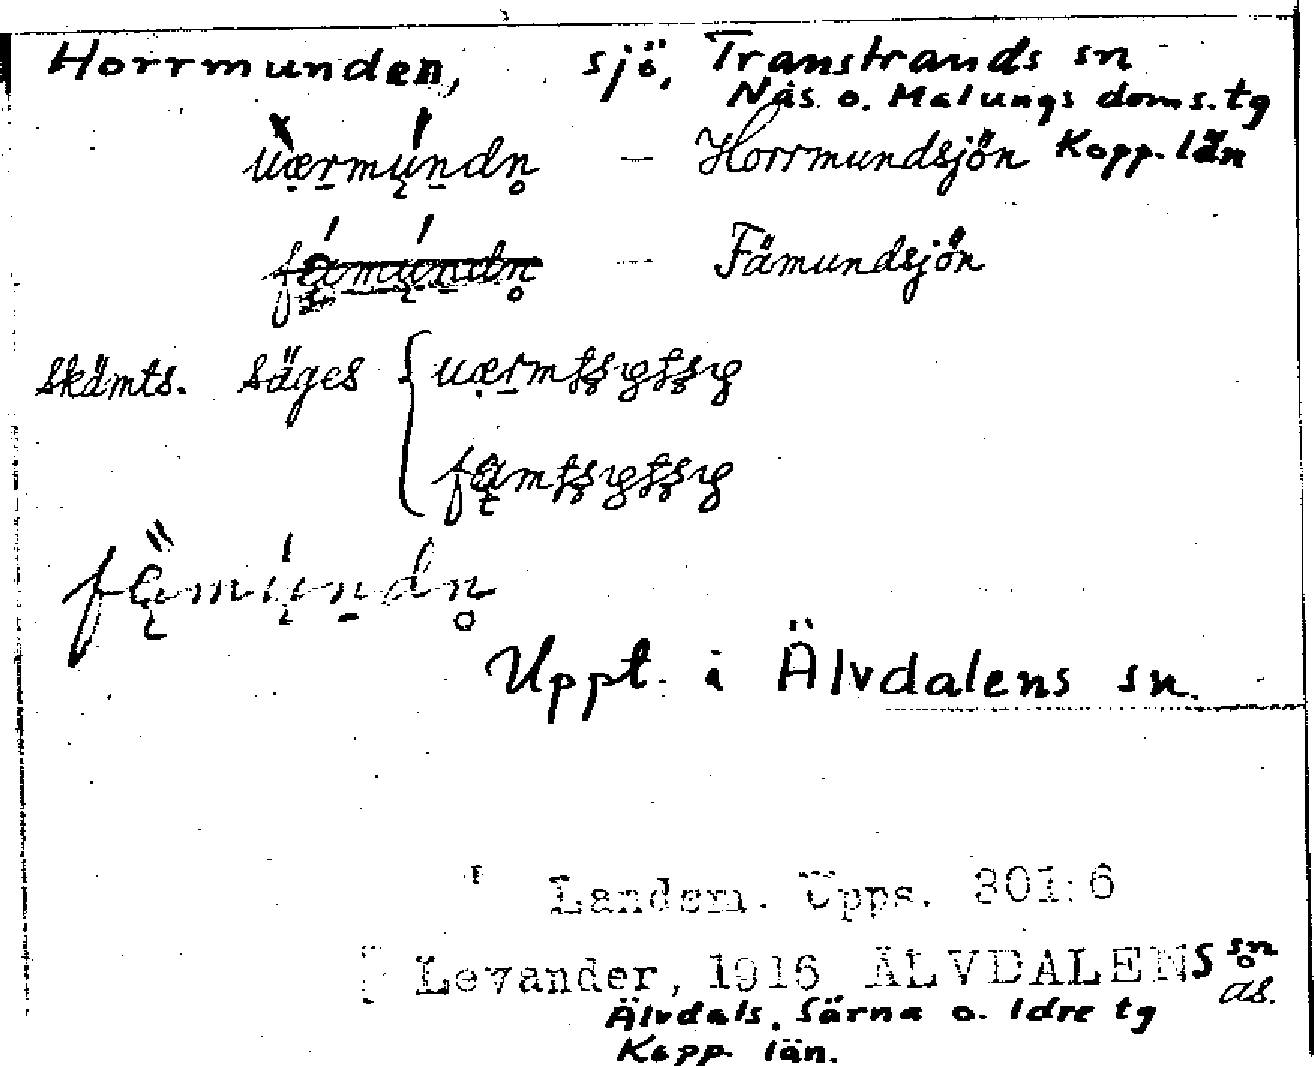 Horrmunden, sjö, Transtrands sn
Näs o. Malungs doms.tg
uærmúndn̥ – Horrmundsjön Kopp. län
– Fämundsjön
skämts. säges
fä̀múndn̥
Uppt. i Älvdalens sn.
Landsm. Upps. 301:6
Levander, 1916 ÄLVDALENS sn
as.
Älvdals, Särna o. Idre tg
Kopp. län.